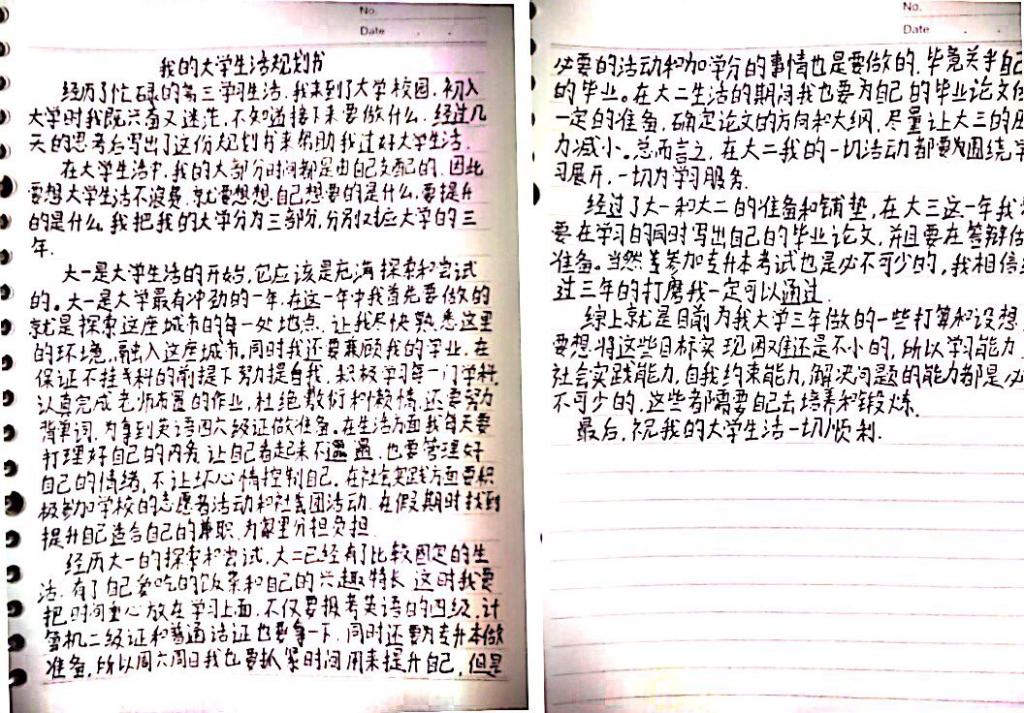 No.
Date
我的大学生活规划书
经历了忙碌的高三学习生活,我来到了大学校园,初入
大学时我既兴奋又迷茫,不知道接下来要做什么,经过几
天的思考后写出了这份规划书来帮助我过好大学生活。
在大学生活中,我的大部分时间都是由自己支配的,因此
要想大学生活不浪费,就要想想自己想要的是什么,要提升
的是什么,我把我的大学分为三部份,分别对应大学的三
年.
大一是大学生活的开始,它应该是充满探索和尝试
的。大一是大学最有冲劲的一年,在这一年中我首先要做的
就是探索这座城市的每一处地点,让我尽快熟悉这里
的环境,融入这座城市,同时我还要兼顾我的学业,在
保证不挂科的前提下努力提自我,积极学习每一门学科,
认真完成老师布置的作业,杜绝敷衍和懒惰,还要努力
背单词,为拿到英语四六级证做准备。在生活方面我每天要
打理好自己的内务,让自己看起来不邋遢,也要管理好
自己的情绪,不让坏心情控制自己,在社会实践方面要积
极参加学校的志愿者活动和社团活动,在假期时找到
提升自己适合自己的兼职,为家里分担负担.
经历大一的探索和尝试,大二已经有了比较固定的生
活,有了自己爱吃的饭菜和自己的兴趣特长,这时我要
把时间重心放在学习上面,不仅要报考英语的四级,计
算机二级证和普通话证也要争一下,同时还要为专升本做
准备,所以周六周日我也要抓紧时间用来提升自己,但是
No.
Date
必要的活动和加学分的事情也是要做的,毕竟关乎自己
的毕业。在大二生活的期间我也要为自己的毕业论文做
一定的准备,确定论文的方向和大纲,尽量让大三的压
力减小。总而言之,在大二我的一切活动都要为围绕学
习展开,一切为学习服务.
经过了大一和大二的准备和铺垫,在大三这一年我
要在学习的同时写出自己的毕业论文,并且要在答辩做
准备。当然参加专升本考试也是必不可少的,我相信经
过三年的打磨我一定可以通过.
综上就是目前为我大学三年做的一些打算和设想,
要想将这些目标实现困难还是不小的,所以学习能力,
社会实践能力,自我约束能力,解决问题的能力都是必
不可少的,这些都需要自己去培养和锻炼.
最后,祝我的大学生活一切顺利.